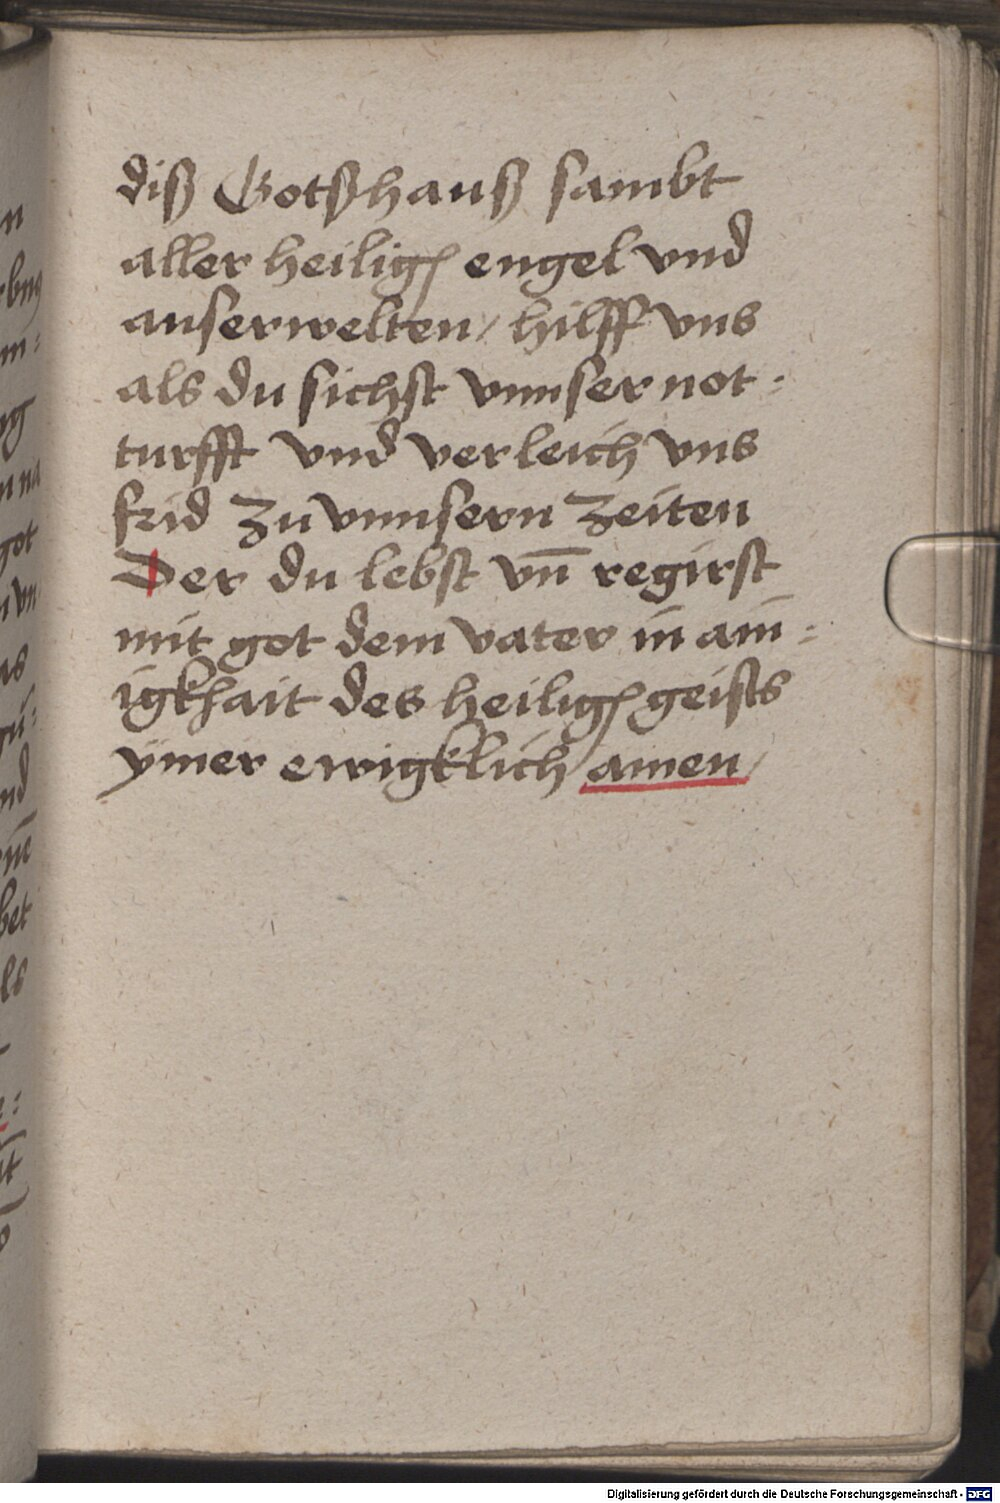 diß Gotßhauß sambt
aller heilig engel vnd
auserwelten / hilff vns
als du sichst vnnser not ·
turfft vnd verleich vns
frid zu vnnsern zeiten
Der du lebst vn̄ regirst
mit got dem vater in ain :
igkhait des heilig geists
ÿmer ewigklich amen /
Digitalisierung gefördert durch die Deutsche Forschungsgemeinschaft - DFG